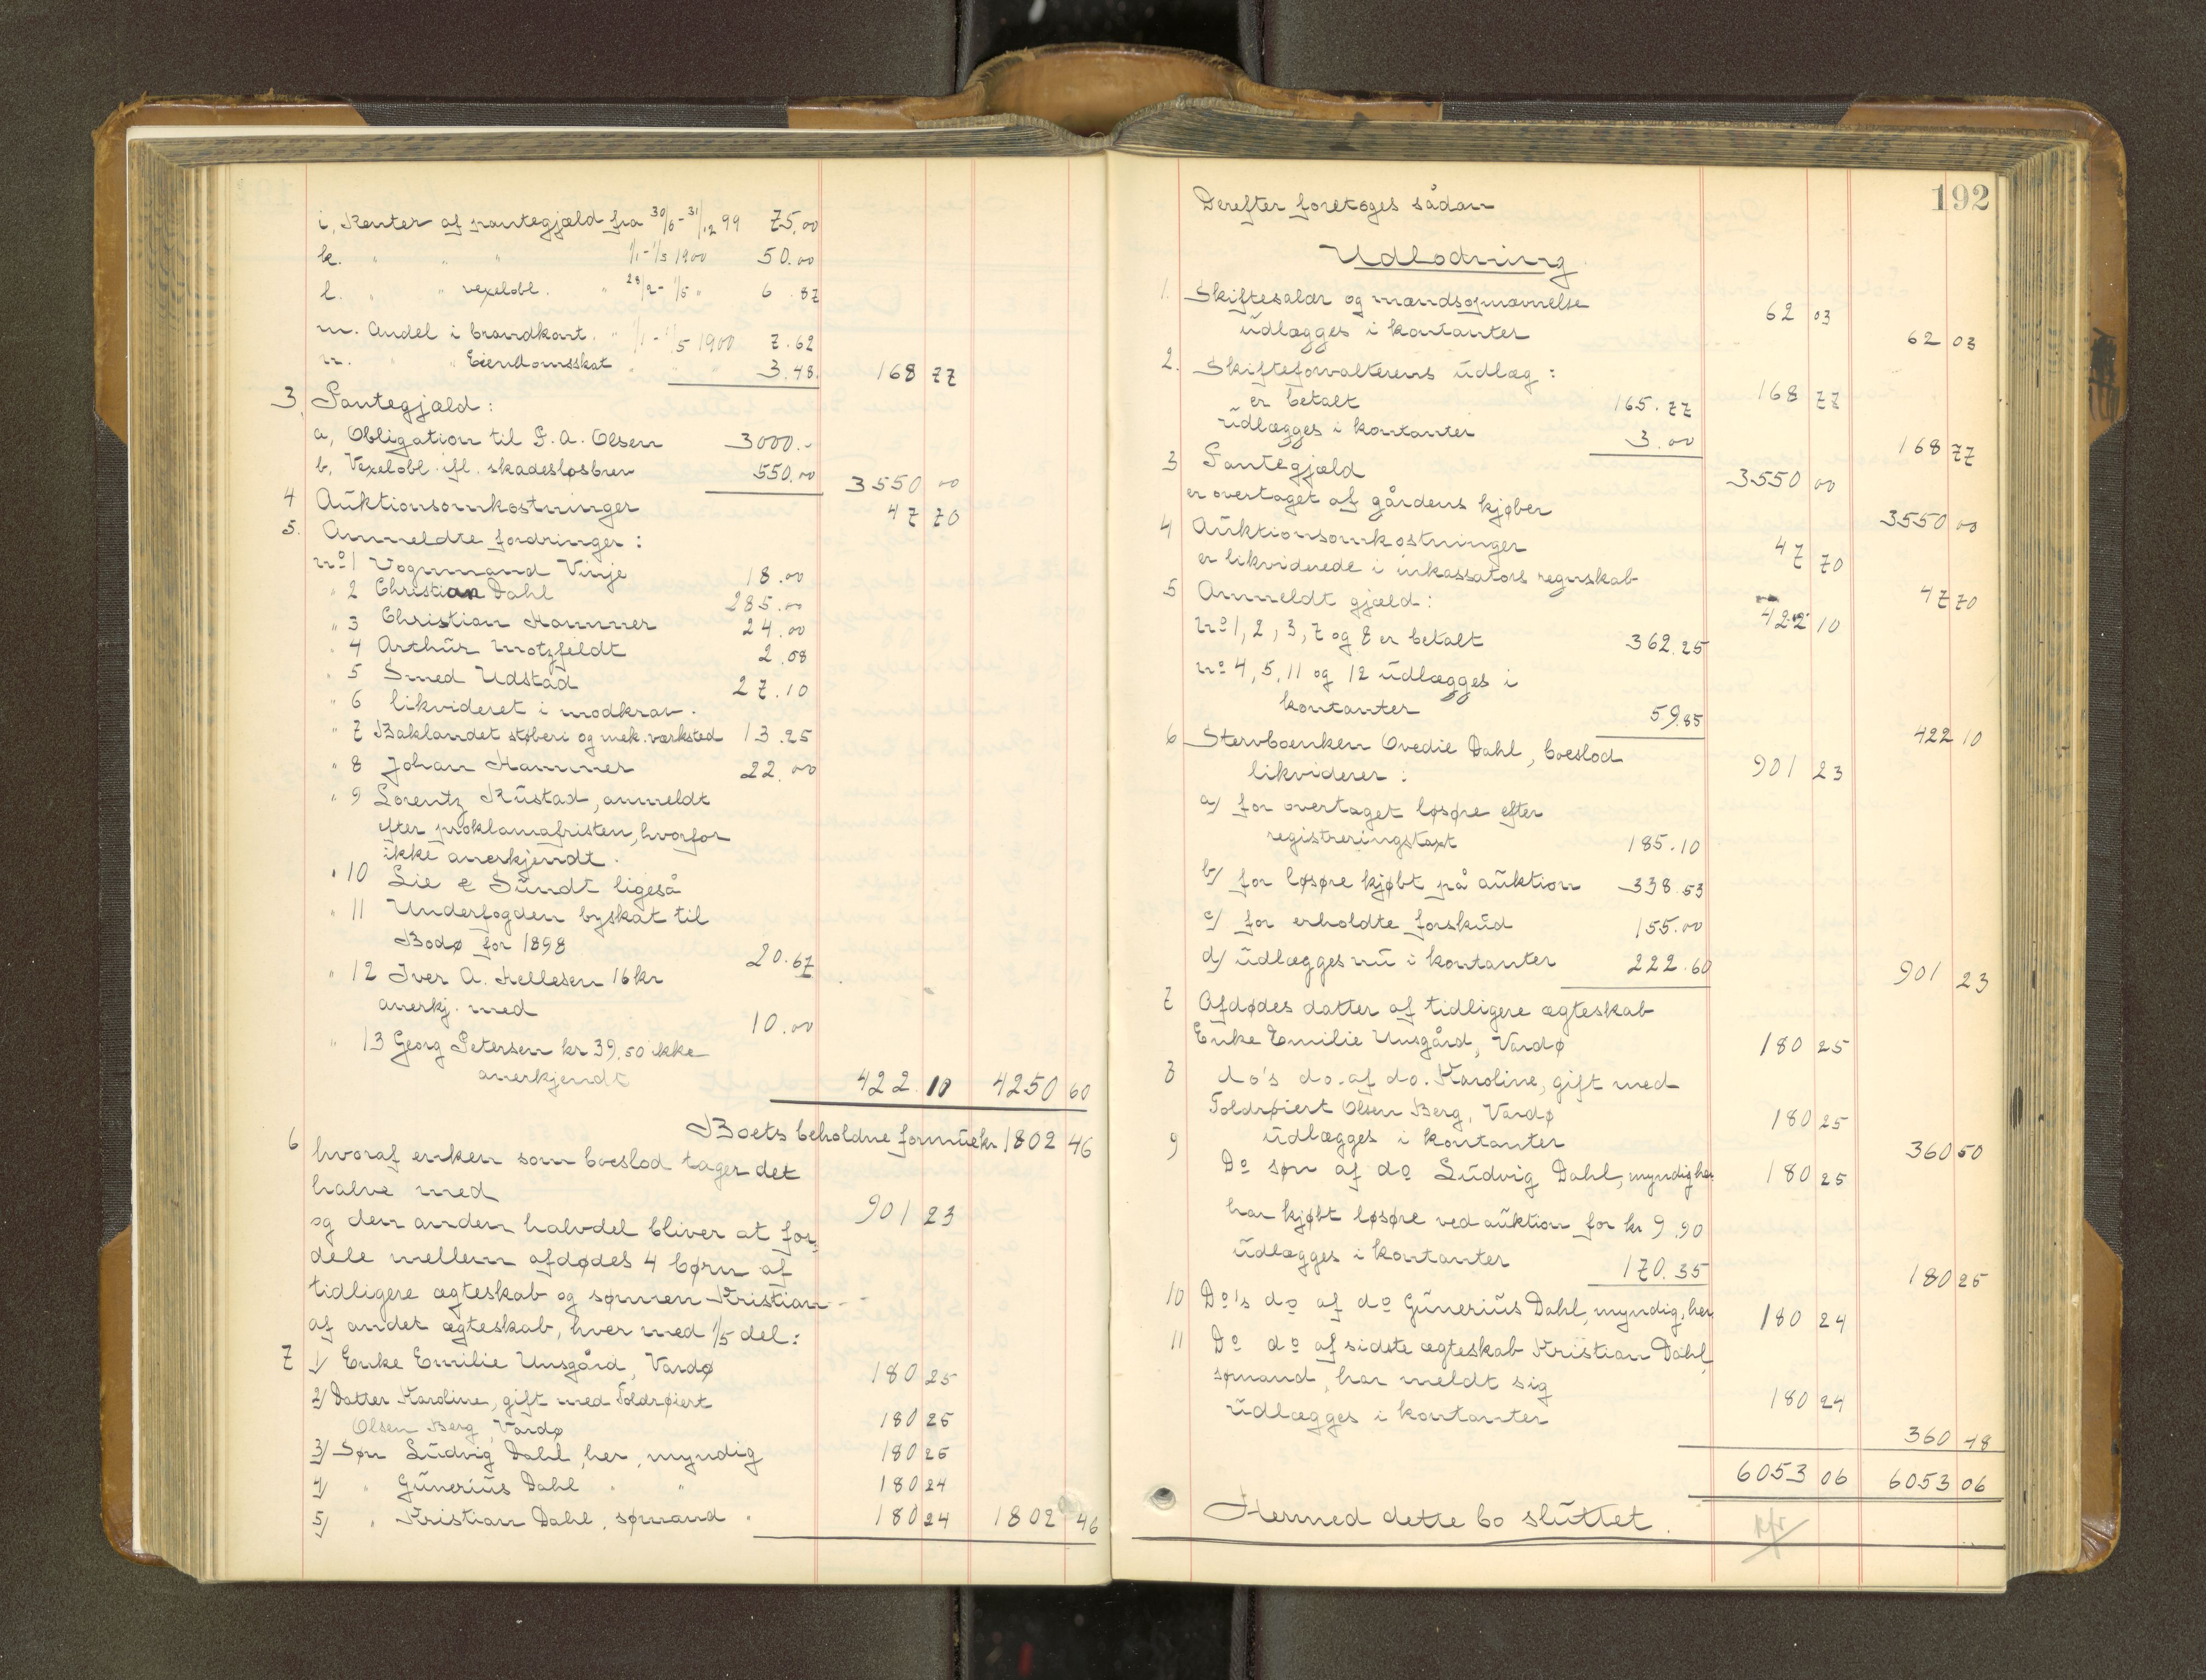 i, Renter af pantegjæld fra 30/6 - 31/12 99 75.00
k. " " " 1/1 - 1/5 1900 50.00
l. " " vexelobl. " 28/2 - 1/5 " 6.87
m. Andel i brandkont. " 1/1 - 1/5 1900 7.62
n. " " Eiendomsskat " " " 3.48. 168 77
3, Pantegjæld:
a, Obligation til P. A. Olsen 3000.-
b, Vexelobl. ifl. skadesløsbrev 550.00 3550 00
4 Auktionsomkostninger 47 70
5. Anmeldte fordringer:
no 1 Vognmand Vinje 18.00
" 2 Christian Dahl 285.00
" 3 Christian Hammer 24.00
" 4 Arthur Motzfeldt 2.08
" 5 Smed Udstad 27.10
" 6 likvideret i modkrav.
" 7 Baklandet støberi og mek. værksted 13.25
" 8 Johan Hammer 22.00
" 9 Lorentz Rustad, anmeldt
efter proklamafristen, hvorfor
ikke anerkjendt.
" 10 Lie & Sundt ligeså
" 11 Underfogden byskat til
Bodø for 1898 20.67
" 12 Iver A. Hellesen 16 kr
anerkj. med 10.00
" 13 Georg Petersen kr 39.50 ikke
anerkjendt 422.10 4250 60
Boets beholdne formue kr 1802 46
6 hvoraf enken som boeslod tager det
halve med 901 23
og den anden halvdel bliver at for-
dele mellem afdødes 4 børn af
tidligere ægteskab og sønnen Kristian
af andet ægteskab, hver med 1/5 del:
7 1/ Enke Emilie Unsgård, Vardø 180 25
2/ Datter Karoline, gift med Toldrøiert
Olsen Berg, Vardø 180 25
3/ Søn Ludvig Dahl, her, myndig 180 25
4/ " Gunerius Dahl " " 180 24
5/ " Kristian Dahl, sømand " 180 24 1802 46
192
Derefter foretoges sådan
Udlodning
1. Skiftesalær og mandsopnævnelse 62 03
udlægges i kontanter 62 03
2. Skifteforvalterens udlæg: 168 77
er betalt 165.77
udlægges i kontanter 3.00 168 77
3 Pantegjæld 3550 00
er overtaget af gårdens kjøber 3550 00
4 Auktionsomkostninger 47 70
er likviderede i inkassators regnskab 47 70
5 Anmeldt gjæld: 422 10
no 1, 2, 3, 7 og 8 er betalt 362.25
no 4, 5, 11 og 12 udlægges i
kontanter 59.85 422 10
6 Stervboenken Ovedie Dahl, boeslod 901 23
likviderer:
a/ for overtaget løsøre efter
registreringstaxt 185.10
b/ for løsøre kjøbt på auktion 338.53
c/ for erholdte forskud 155.00
d/ udlægges nu i kontanter 222.60 901 23
7 Afdødes datter af tidligere ægteskab
Enke Emilie Unsgård, Vardø 180 25
8 do's do. af do. Karoline, gift med
Toldrøiert Olsen Berg, Vardø 180 25
udlægges i kontanter 360 50
9 Do søn af do Ludvig Dahl, myndig her 180 25
har kjøbt løsøre ved auktion for kr 9.90
udlægges i kontanter 170.35 180 25
10 Do's do af do Gunerius Dahl, myndig, her 180 24
11 Do do af sidste ægteskab Kristian Dahl,
sømand, har meldt sig 180 24
udlægges i kontanter 360 48
6053 06 6053 06
Hermed dette bo sluttet.